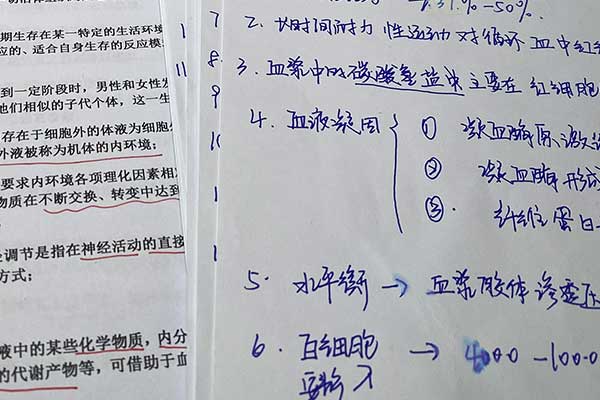 期生存在某一特定的生活环境
应的、适合自身生存的反应模
到一定阶段时，男性和女性发
他们相似的子代个体，这一生
存在于细胞外的体液为细胞外
外液被称为机体的内环境；
要求内环境各项理化因素相
物质在不断交换、转变中达到
调节是指在神经活动的直接
方式；
液中的某些化学物质，内分
的代谢产物等，可借助于血
7
8
9
1
11
-50%.
2. 长时间耐力性运动对循环血中红
3. 血浆中的碳酸氢盐 主要在红细胞
4. 血液凝固
① 凝血酶原激活
② 凝血酶形成
③. 纤维蛋白
5. 水平衡 → 血浆胶体渗透压
6. 白细胞 → 4000-1000